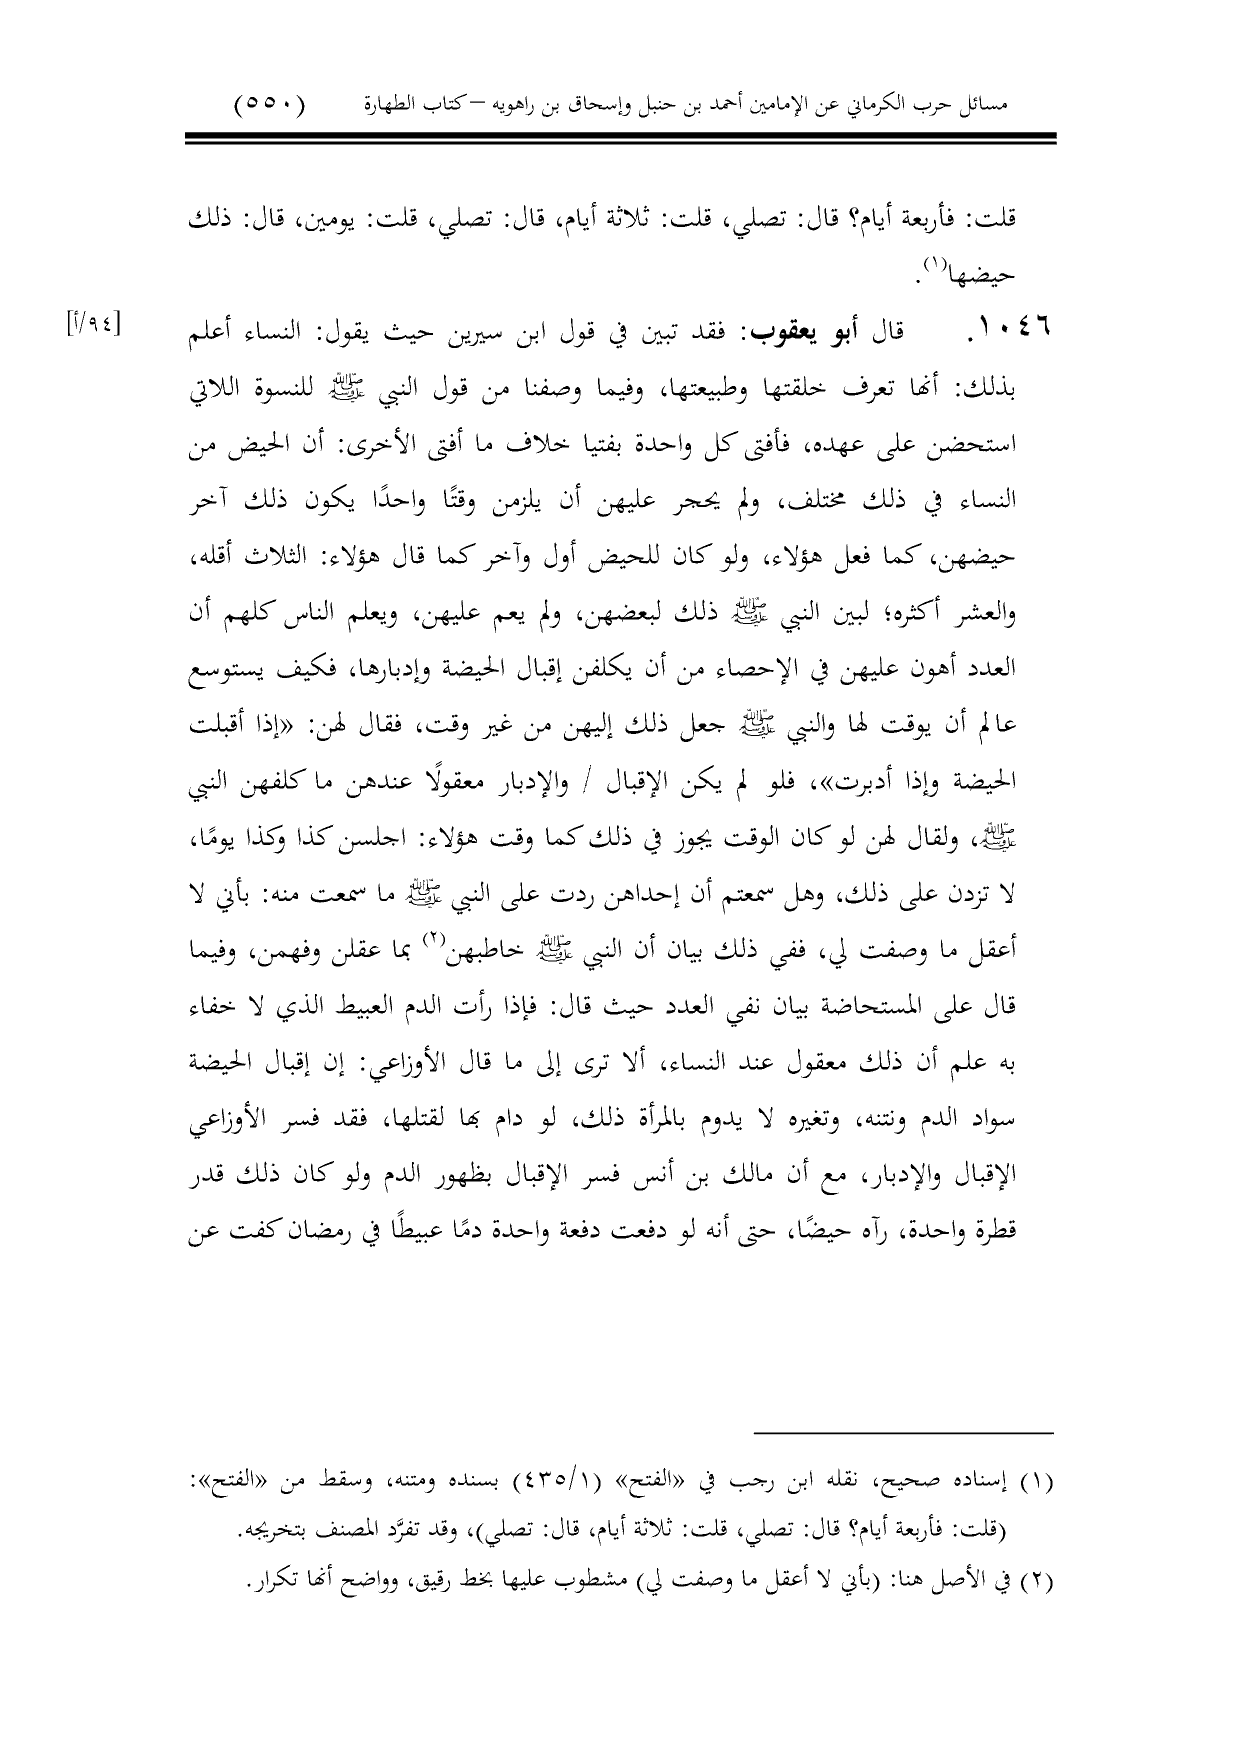 مسائل حرب الكرماني عن الإمامين أحمد بن حنبل وإسحاق بن راهويه – كتاب الطهارة (٥٥٠)
قلت: فأربعة أيام؟ قال: تصلي، قلت: ثلاثة أيام، قال: تصلي، قلت: يومين، قال: ذلك
حيضها(١).
[٩٤/أ]
١٠٤٦. قال أبو يعقوب: فقد تبين في قول ابن سيرين حيث يقول: النساء أعلم
بذلك: أنها تعرف خلقتها وطبيعتها، وفيما وصفنا من قول النبي ﷺ للنسوة اللاتي
استحضن على عهده، فأفتى كل واحدة بفتيا خلاف ما أفتى الأخرى: أن الحيض من
النساء في ذلك مختلف، ولم يحجر عليهن أن يلزمن وقتًا واحدًا يكون ذلك آخر
حيضهن، كما فعل هؤلاء، ولو كان للحيض أول وآخر كما قال هؤلاء: الثلاث أقله،
والعشر أكثره؛ لبين النبي ﷺ ذلك لبعضهن، ولم يعم عليهن، ويعلم الناس كلهم أن
العدد أهون عليهن في الإحصاء من أن يكلفن إقبال الحيضة وإدبارها، فكيف يستوسع
عالم أن يوقت لها والنبي ﷺ جعل ذلك إليهن من غير وقت، فقال لهن: «إذا أقبلت
الحيضة وإذا أدبرت»، فلو لم يكن الإقبال / والإدبار معقولًا عندهن ما كلفهن النبي
ﷺ، ولقال لهن لو كان الوقت يجوز في ذلك كما وقت هؤلاء: اجلسن كذا وكذا يومًا،
لا تزدن على ذلك، وهل سمعتم أن إحداهن ردت على النبي ﷺ ما سمعت منه: بأني لا
أعقل ما وصفت لي، ففي ذلك بيان أن النبي ﷺ خاطبهن(٢) بما عقلن وفهمن، وفيما
قال على المستحاضة بيان نفي العدد حيث قال: فإذا رأت الدم العبيط الذي لا خفاء
به علم أن ذلك معقول عند النساء، ألا ترى إلى ما قال الأوزاعي: إن إقبال الحيضة
سواد الدم ونتنه، وتغيره لا يدوم بالمرأة ذلك، لو دام بها لقتلها، فقد فسر الأوزاعي
الإقبال والإدبار، مع أن مالك بن أنس فسر الإقبال بظهور الدم ولو كان ذلك قدر
قطرة واحدة، رآه حيضًا، حتى أنه لو دفعت دفعة واحدة دمًا عبيطًا في رمضان كفت عن
(١) إسناده صحيح، نقله ابن رجب في «الفتح» (٤٣٥/١) بسنده ومتنه، وسقط من «الفتح»:
(قلت: فأربعة أيام؟ قال: تصلي، قلت: ثلاثة أيام، قال: تصلي)، وقد تفرَّد المصنف بتخريجه.
(٢) في الأصل هنا: (بأني لا أعقل ما وصفت لي) مشطوب عليها بخط رقيق، وواضح أنها تكرار.